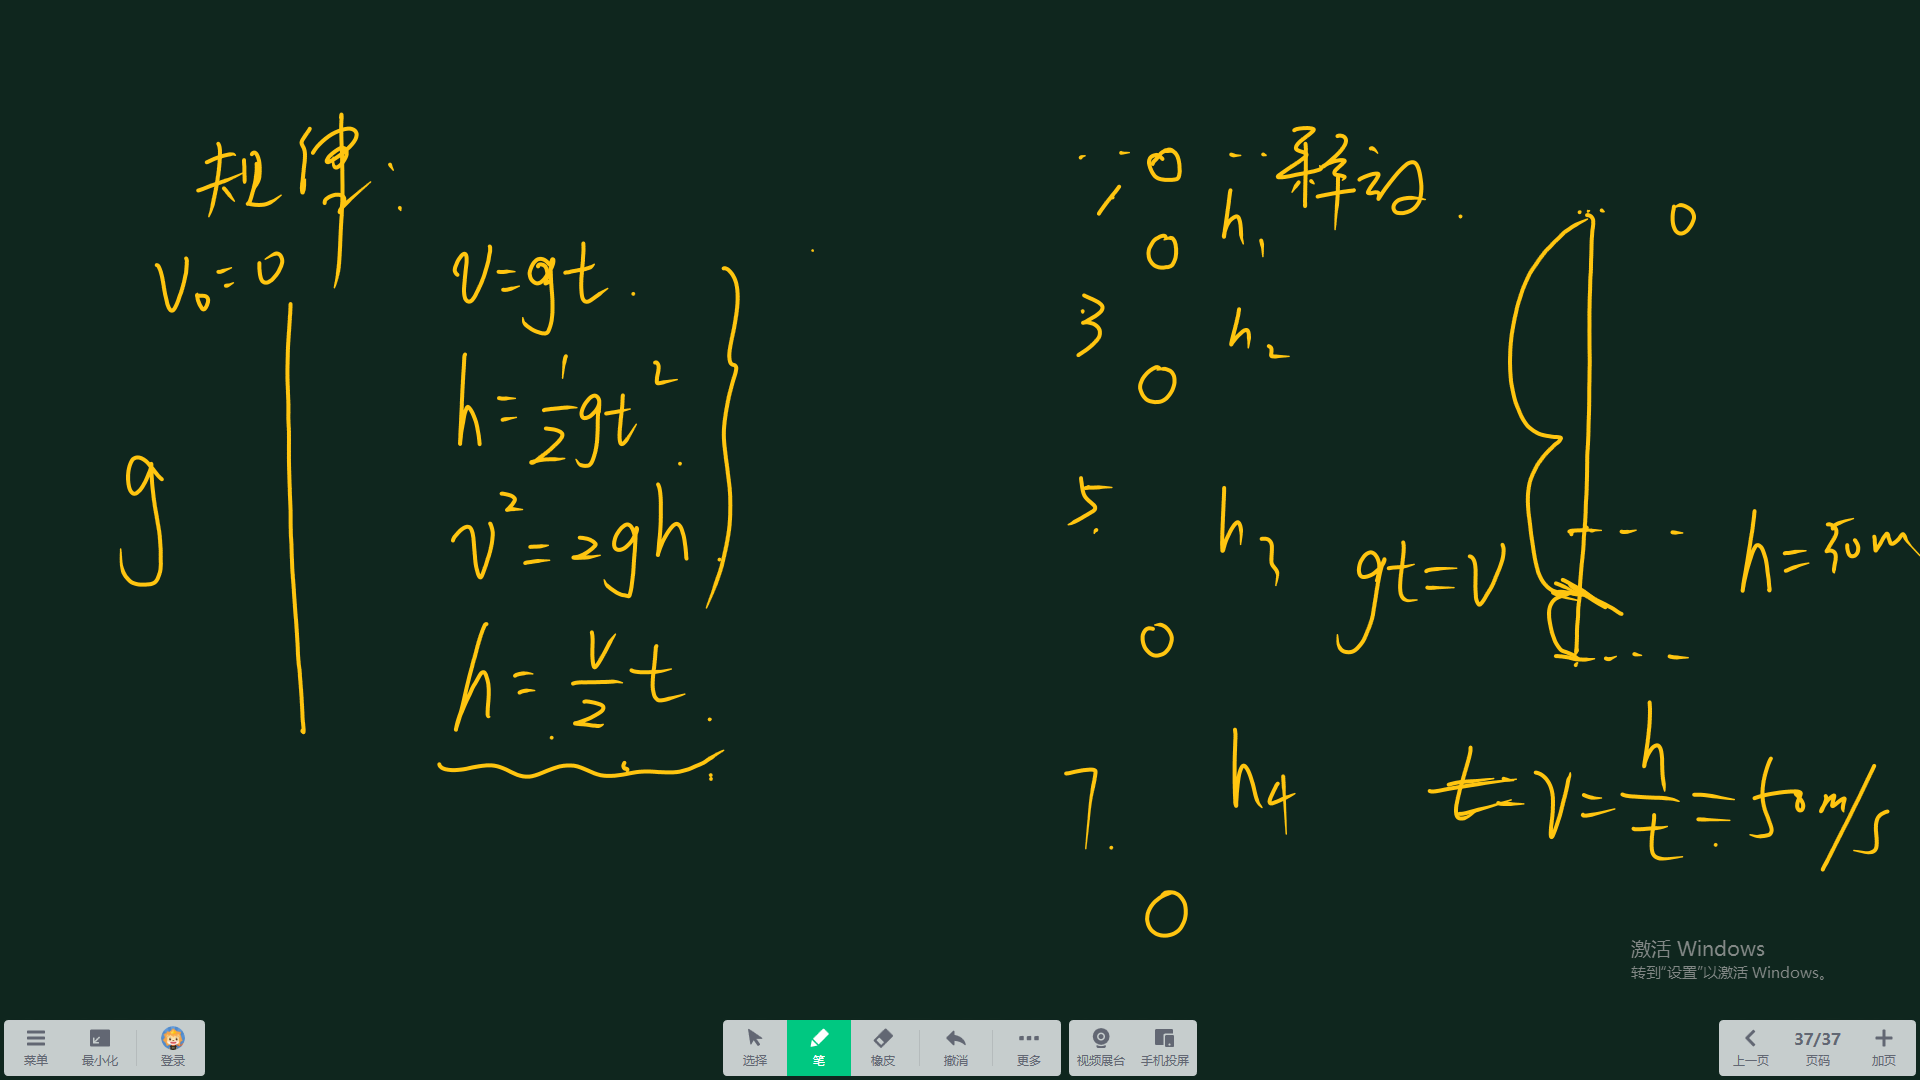 规律:
v₀=0
g
v=gt.
h=1/2gt².
v²=2gh.
h=v/2t.
1
0
释放.
h₁
0
3
h₂
0
5.
h₃
0
7.
h₄
0
0
gt=v
h=50m
t=v=h/t=50m/s
激活 Windows
转到“设置”以激活 Windows。
菜单
最小化
登录
选择
笔
橡皮
撤消
更多
视频展台
手机投屏
上一页
37/37
页码
加页